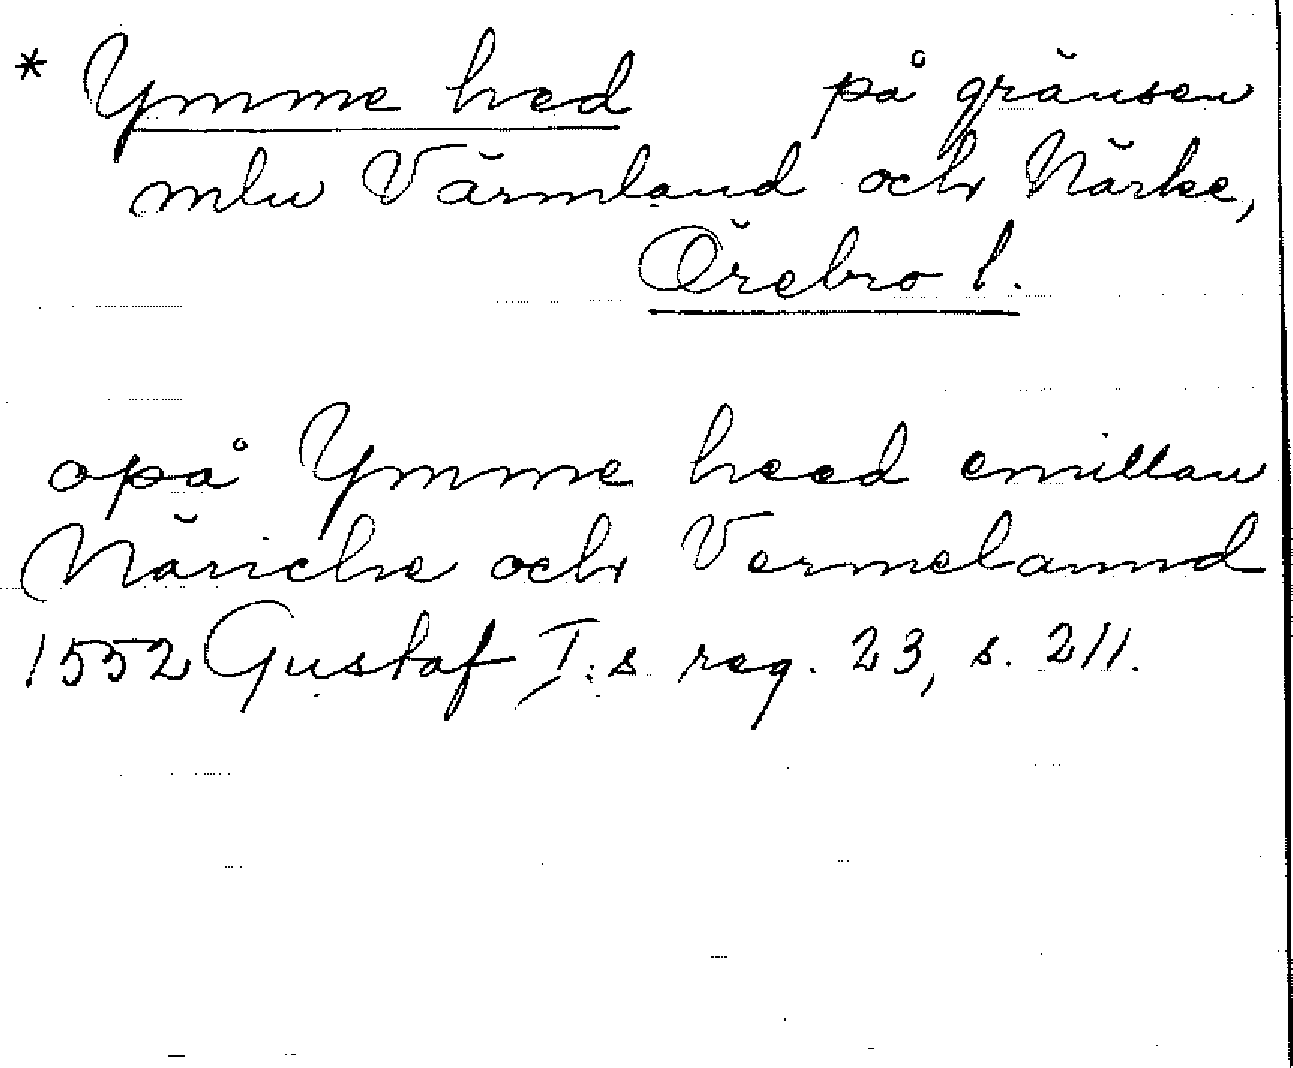 * Ymme hed på gränsen
mln Värmland och Närke,
Örebro l.
opå Ymme heed emillan
Näriche och Vermelannd
1552 Gustaf I:s reg. 23, s. 211.